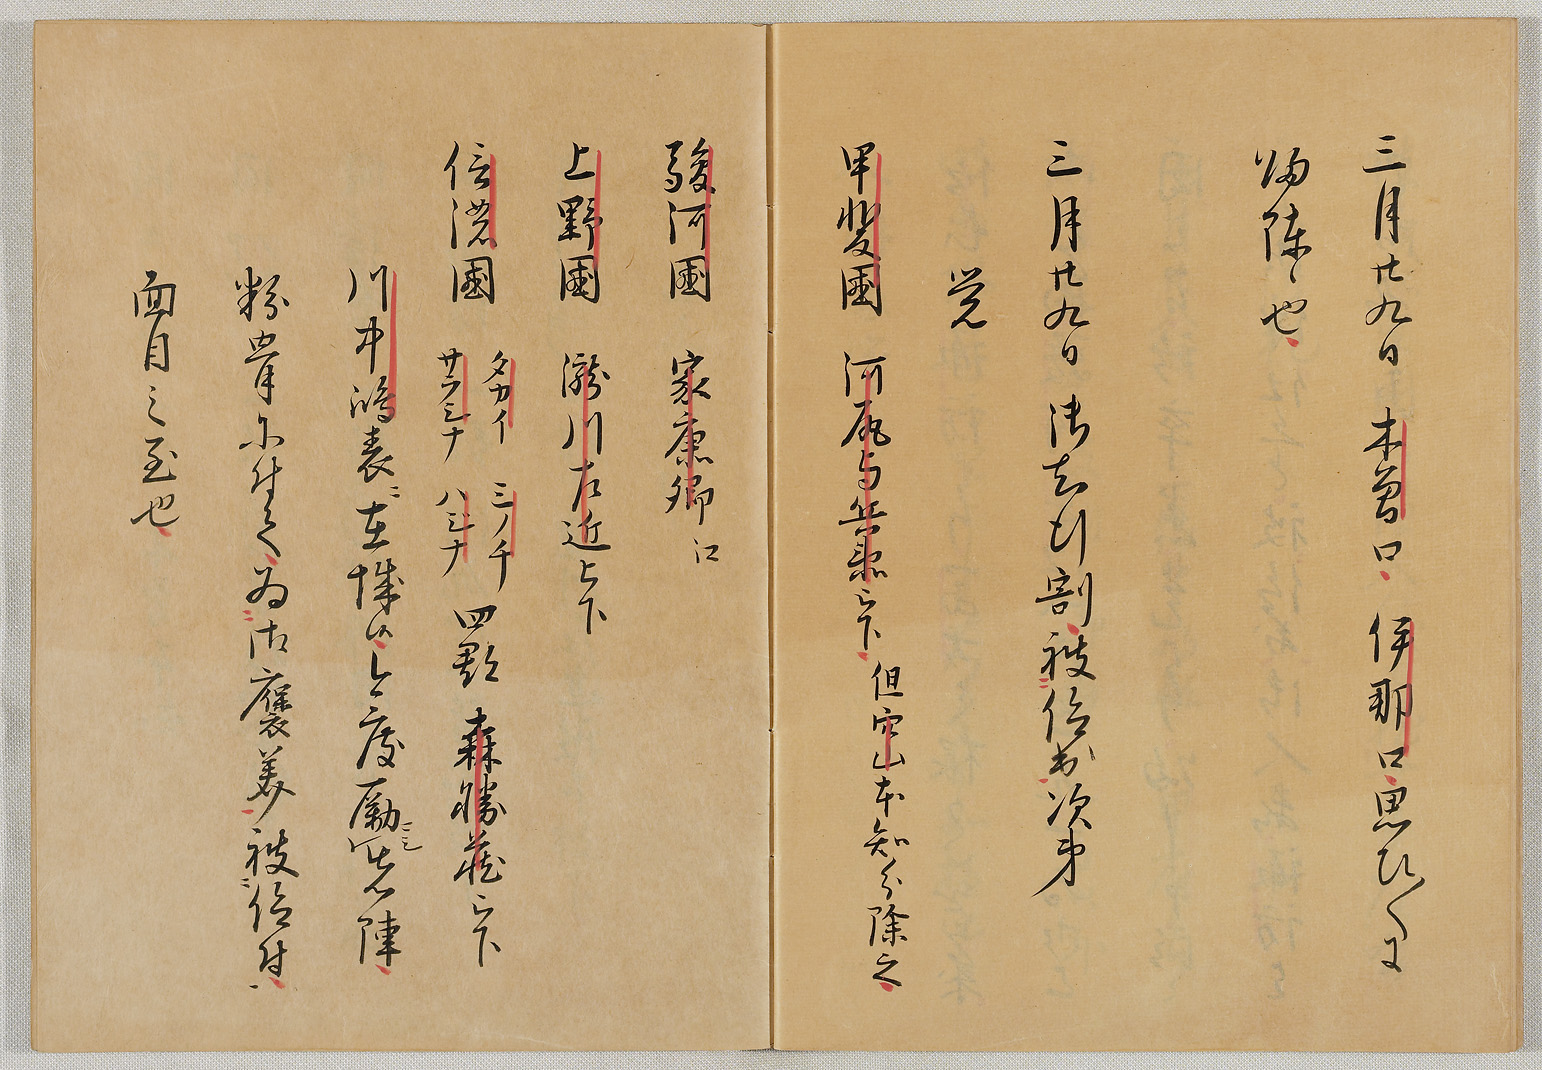 三月廿九日木曽口伊那口思ひ〱に
帰陣候也
三月廿九日御知行割被仰出次第
覚
甲斐國　河尻与兵衛被下　但穴山本知分除之
駿河國　家康卿江
上野國　瀧川左近被下
信濃國　タカイ　ミノチ　サラシナ　ハジナ　四郡　森勝蔵被下
川中嶋表在城候今度励先陣
粉骨に付て為御褒美被仰付
面目之至也